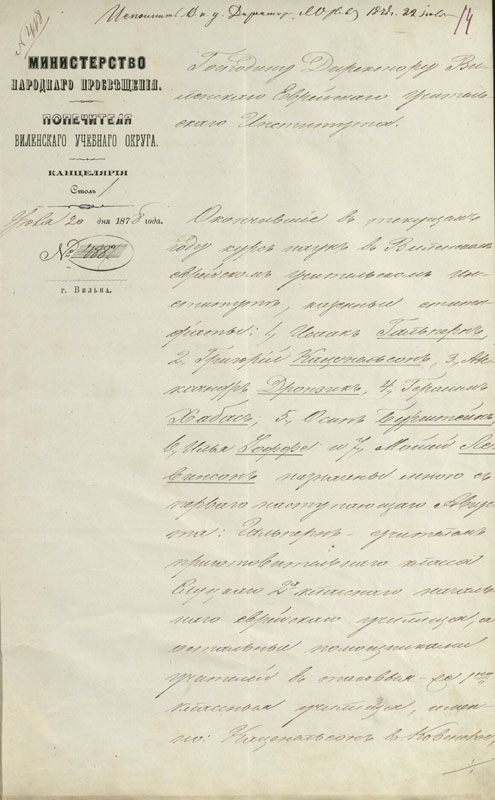 № 418
Исполнить. И. д. Директор 1878 г. 22 июля
14
МИНИСТЕРСТВО
НАРОДНАГО ПРОСВѢЩЕНІЯ.
ПОПЕЧИТЕЛЯ
ВИЛЕНСКАГО УЧЕБНАГО ОКРУГА.
КАНЦЕЛЯРІЯ
Столъ 1
20 дня 1878 года.
№
г. Вильна.
Господину Директору Ви-
ленскаго Еврейскаго учитель-
скаго Института.
Окончившіе въ текущемъ
году курсъ наукъ въ Виленскомъ
еврейскомъ учительскомъ Ин-
ститутѣ, казенные стипен-
діаты: 1, Исаакъ Гальпернъ,
2, Григорій Каценельсонъ, 3, Але-
ксандръ 4, Герасимъ
Хабасъ, 5, Осипъ Бурштейнъ,
6, Илья Іоффе и 7, Моисей Ле-
винсонъ назначены мною съ
перваго наступающаго Авгус-
та: Гальпернъ – учителемъ
приготовительнаго класса
Слуцкаго 2хъ класснаго началь-
наго еврейскаго училища, а
остальные помощниками
учителей въ таковыя-же
классныя училища, имен-
но: Каценельсонъ въ Ковенское,